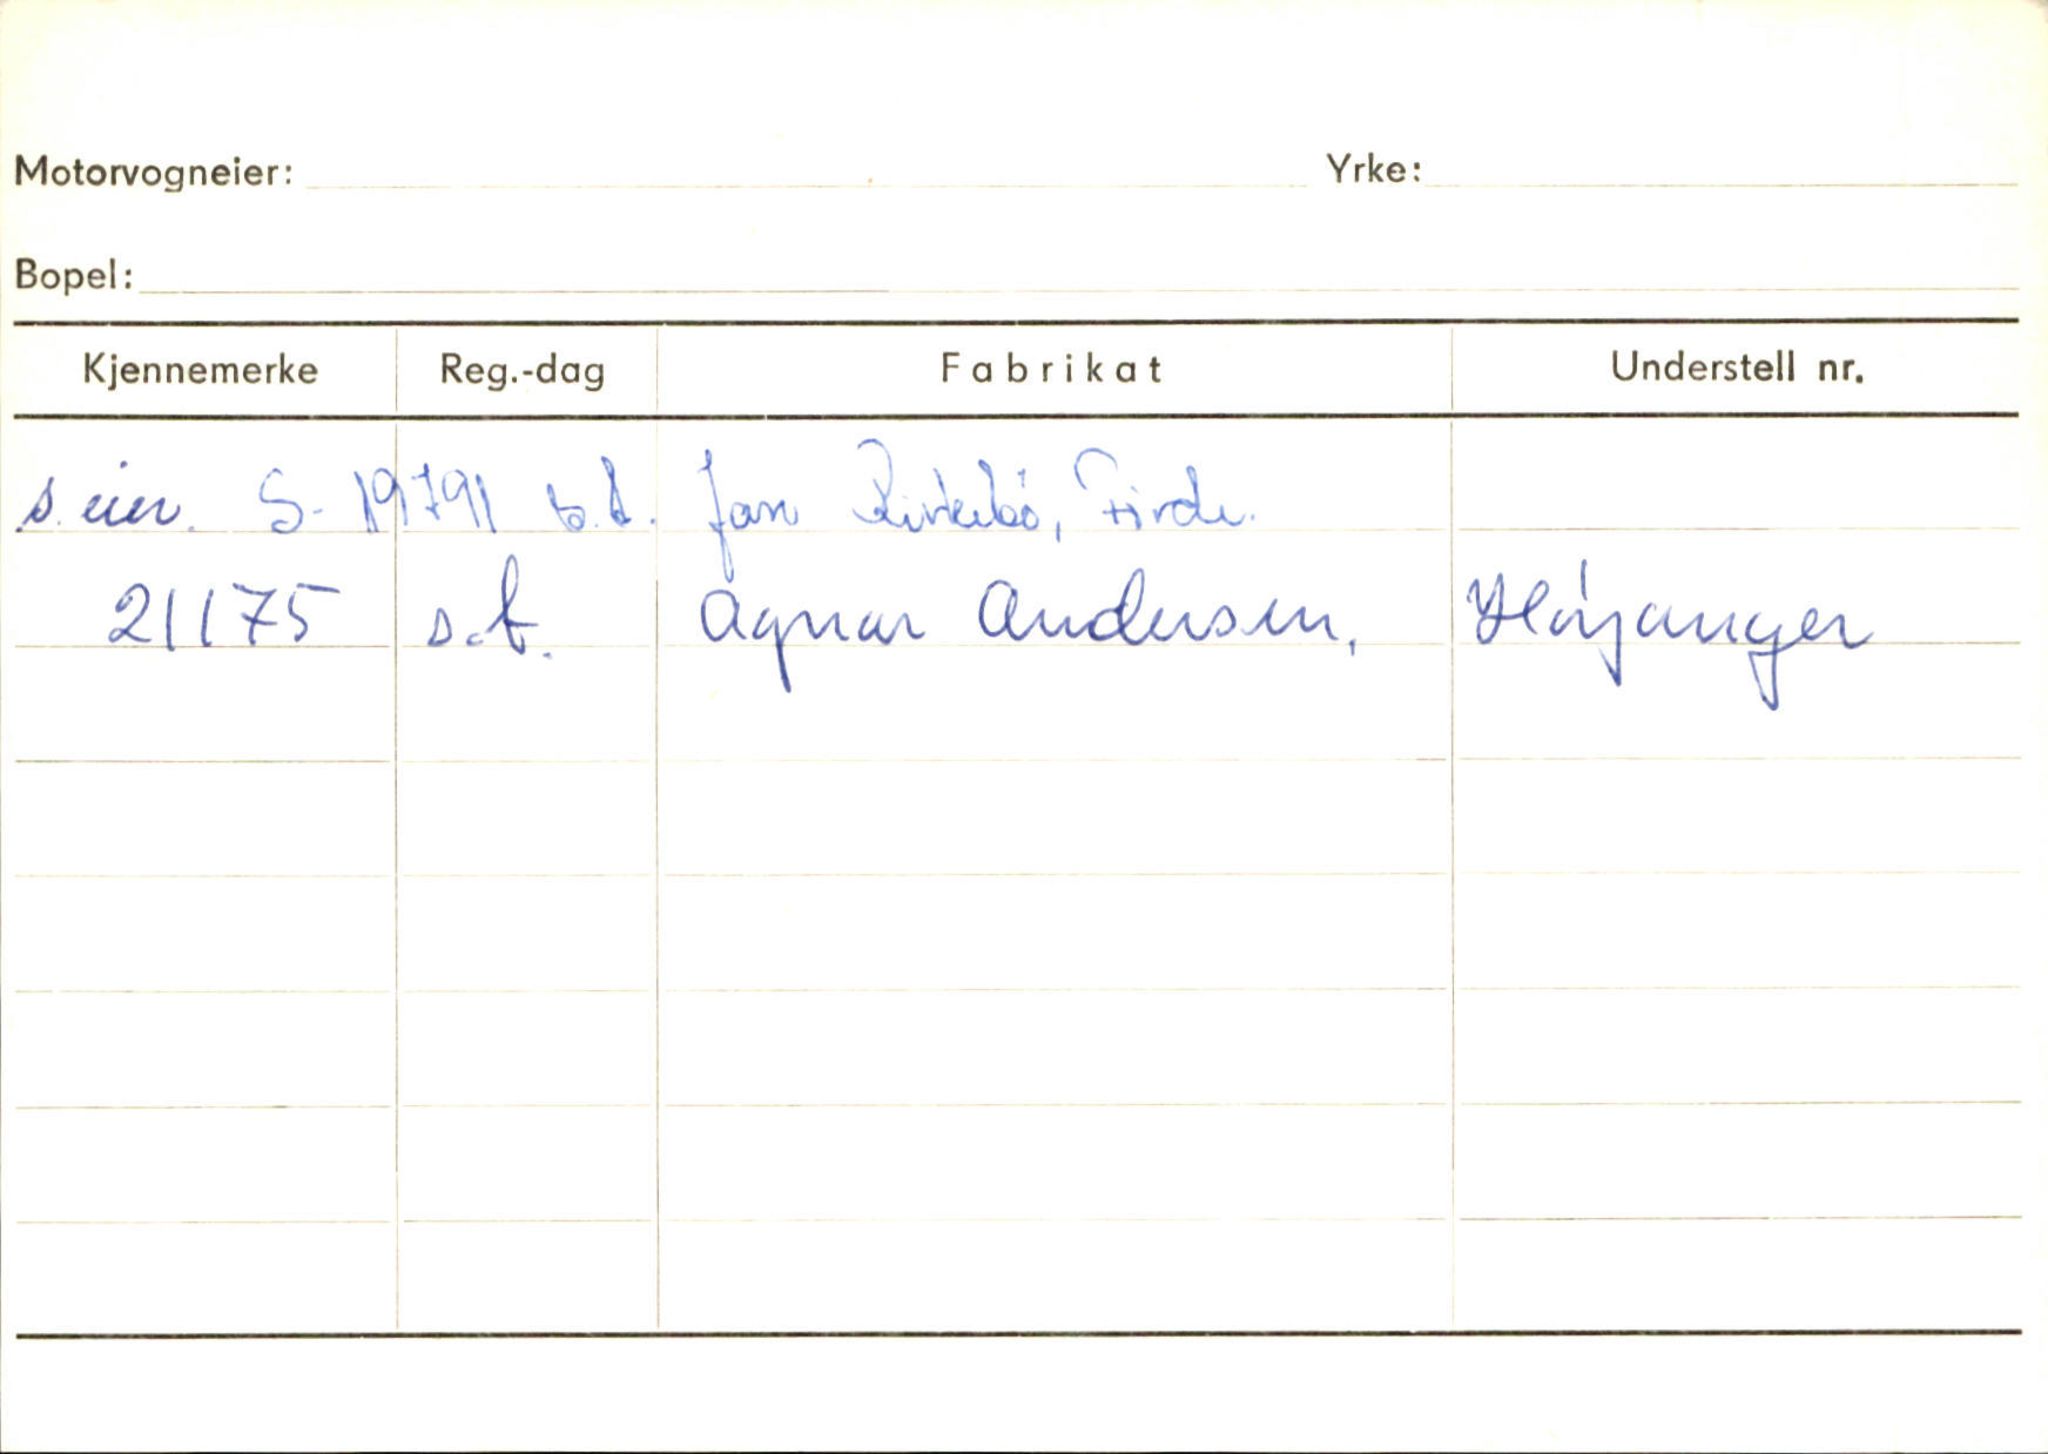 Motorvogneier: Yrke:
Bopel:
Kjennemerke Reg.-dag Fabrikat Understell nr.
s. eier. S-19791 s.d. Jan Kirkebö, Förde.
21175 s.t. Agnar Andersen, Höyanger